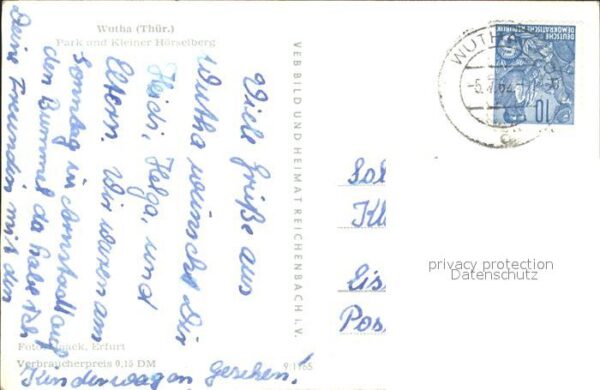 Wutha (Thür.)
Park und Kleiner Hörselberg
Viele Grüße aus
Wutha wünscht Dir
Heidi, Helga, und
Eltern. Wir waren am
Sonntag in Arnstadt auf
dem Bummel da habe ich
Deine Freundin mit den
Kinderwagen gesehen!
Foto: Hanck, Erfurt
Verbraucherpreis 0,15 DM
9 1765
VEB BILD UND HEIMAT REICHENBACH i. V.
DEUTSCHE
DEMOKRATISCHE REPUBLIK
10
WUTHA
-5.
64
Sol
Kl
Eis
Pos
privacy protection
Datenschutz